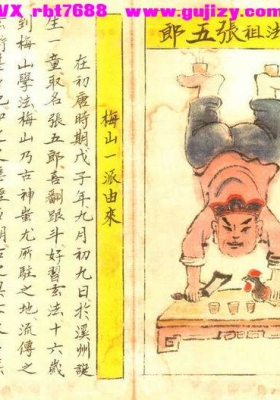 VX rbt7688 www.gujizy.com
法祖張五郎
梅山一派由來
在初唐時期戊子年九月初九日於溪州誕
生一童取名張五郎喜翻跟斗好習玄法十六歲
到梅山學法梅山乃古神蚩尤所駐之地流傳之